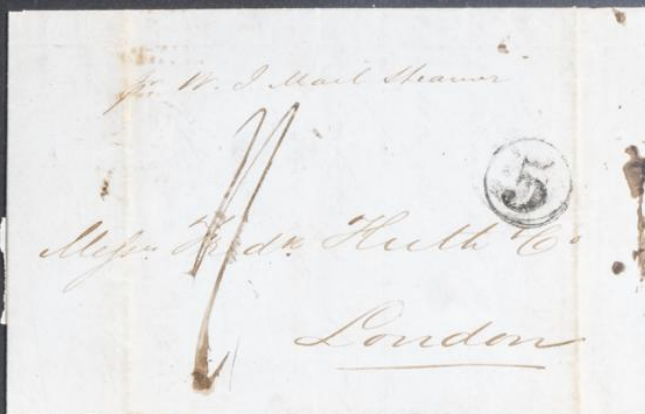 pr W. I Mail Steamer
5
Messrs Fredk Huth & Co
London